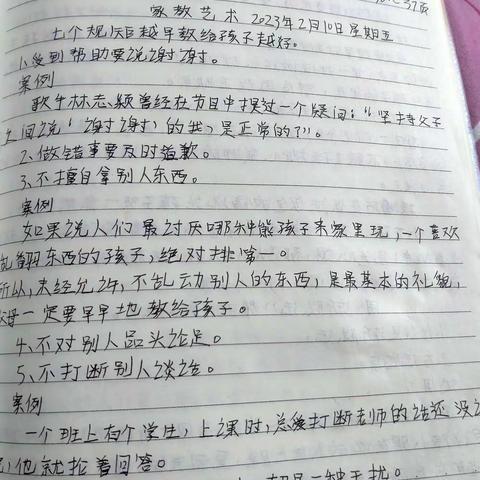 37页
家教艺术 2023年2月10日星期五
七个规矩越早教给孩子越好。
1、受到帮助要说谢谢。
案例
歌手林志颖曾经在节目中提过一个疑问："坚持父子
之间说'谢谢'的我,是正常的了"。
2、做错事要及时道歉。
3、不擅自拿别人东西。
案例
如果说人们最讨厌哪种熊孩子来家里玩,一个喜欢
乱翻东西的孩子,绝对排第一。
所以,未经允许,不乱动别人的东西,是最基本的礼貌,
父母一定要早早地教给孩子。
4、不对别人品头论足。
5、不打断别人谈话。
案例
一个班上有个学生,上课时,总爱打断老师的话还没
完,他就抢着回答。
一种干扰。